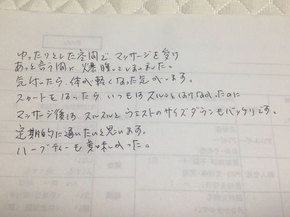 ゆったりとした空間でマッサージを受け
あっと言う間に爆睡してしまいました。
気付いたら、体が軽くなった気がします。
スカートをはったら いつもはスルッとはけなかったのに
マッサージ後は スルスルと ウエストのサイズダウンもバッチリです。
定期的に通いたいと思います。
ハーブティーも美味しかった。